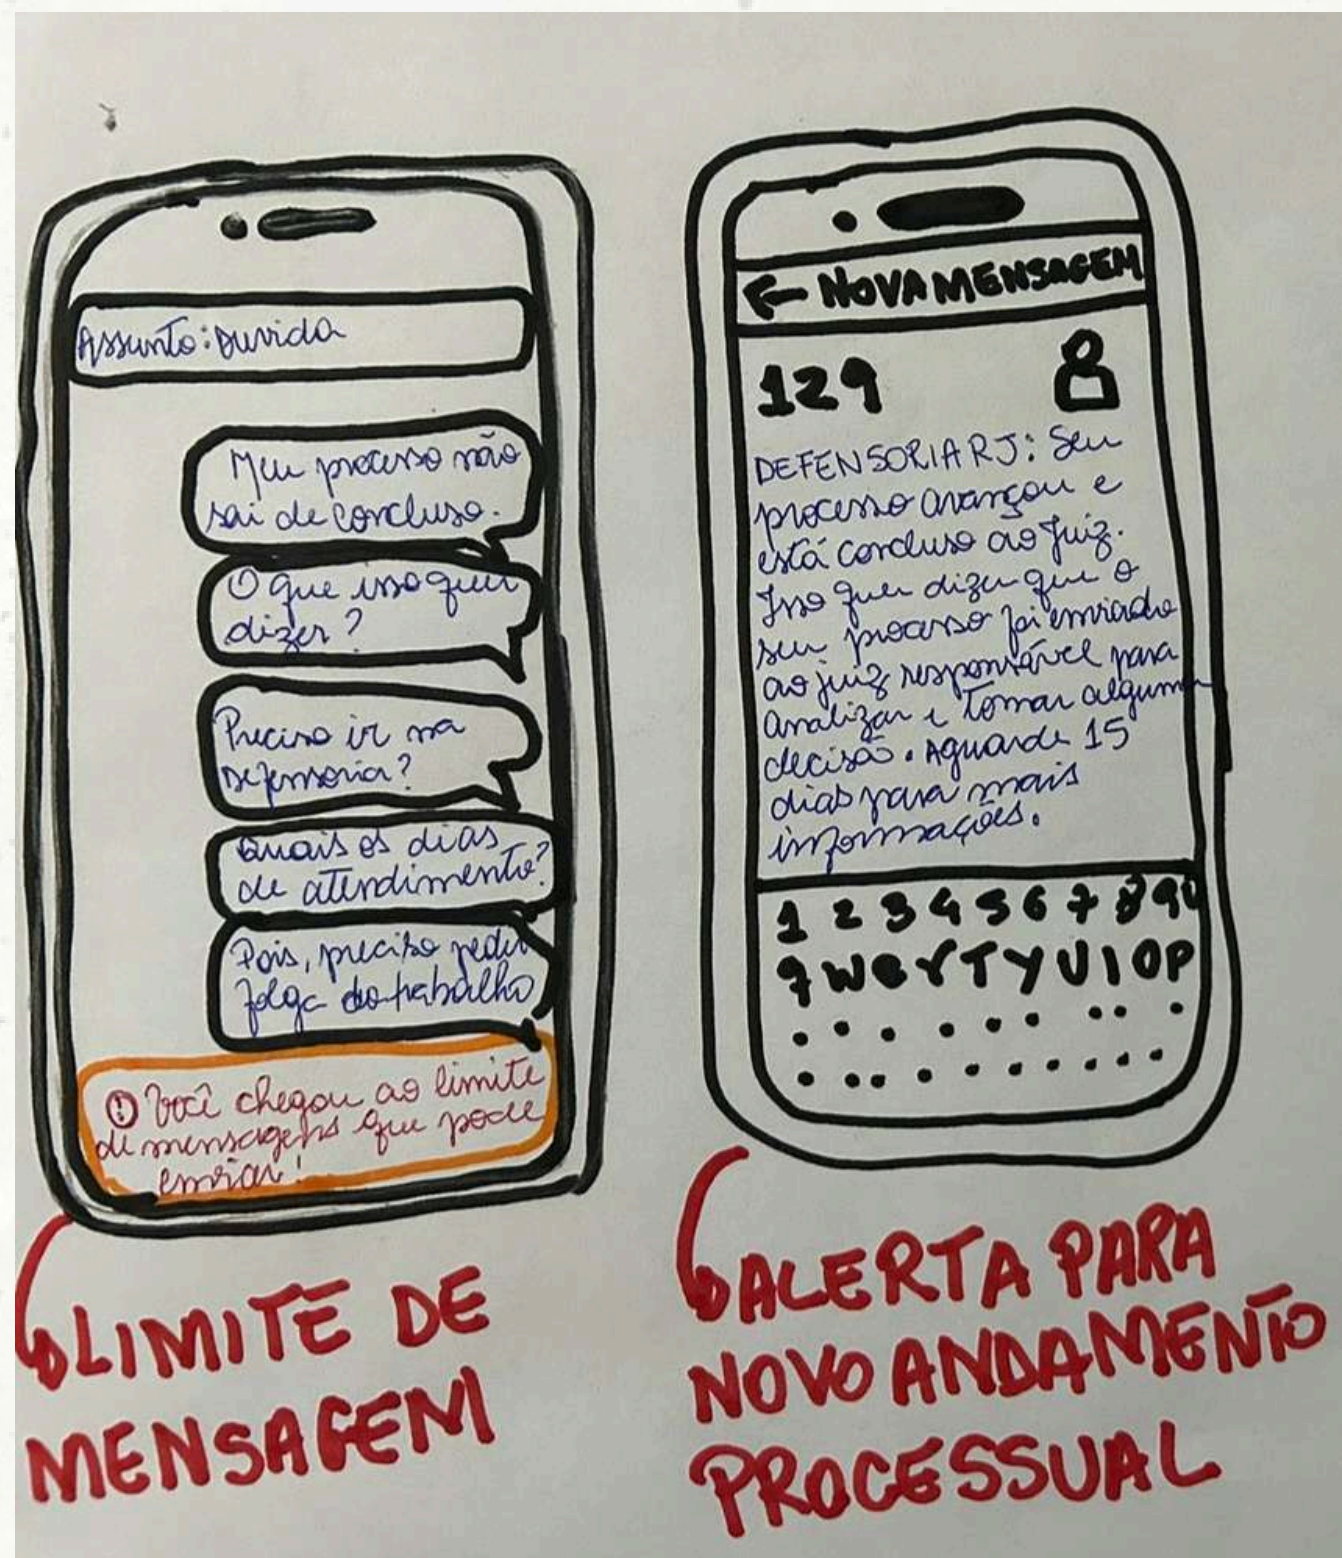 Assunto: Duvida
Meu processo não
sai de concluso.
O que isso quer
dizer?
Preciso ir na
Defensoria?
Quais os dias
de atendimento?
Pois, preciso pedir
folga do trabalho
! Você chegou ao limite
de mensagens que pode
enviar!
LIMITE DE
MENSAGEM
← NOVA MENSAGEM
129
DEFENSORIA RJ: Seu
processo avançou e
está concluso ao Juiz.
Isso quer dizer que o
seu processo foi enviado
ao juiz responsável para
analizar e tomar alguma
decisão. Aguarde 15
dias para mais
informações.
1 2 3 4 5 6 7 8 9 0
q w e r T y U I O P
ALERTA PARA
NOVO ANDAMENTO
PROCESSUAL